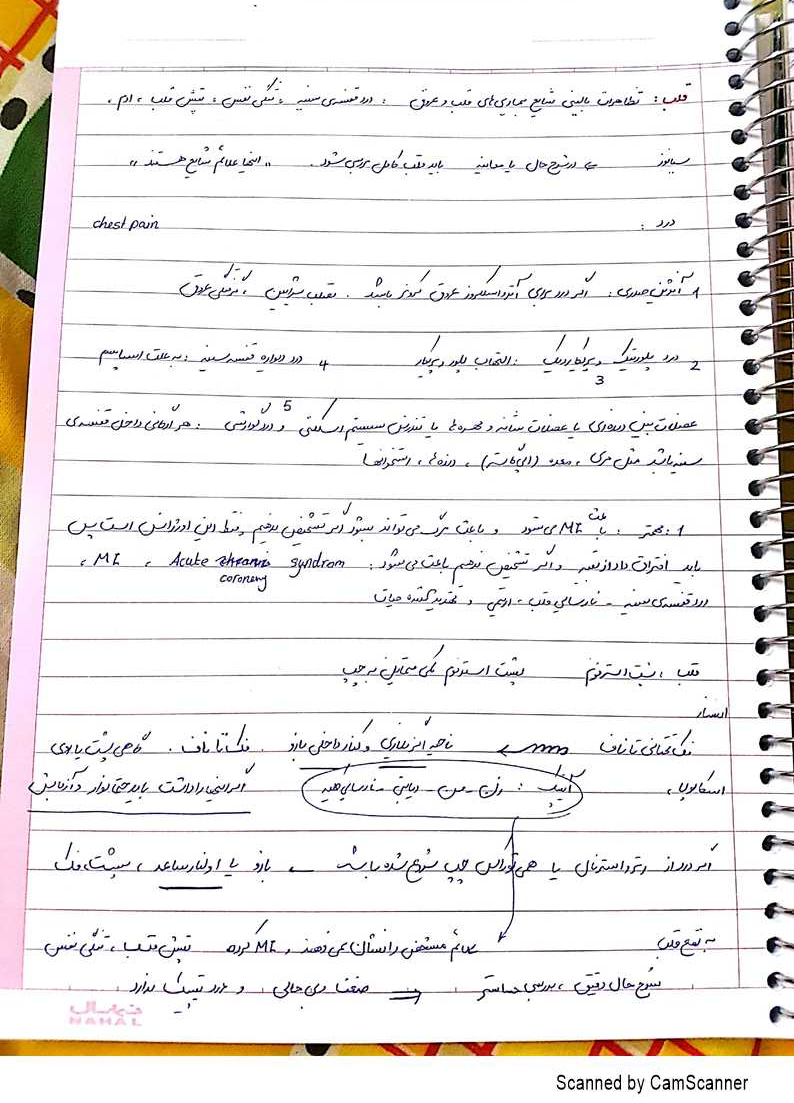 قلب: تظاهرات بالینی شایع بیماری‌های قلب و عروق: درد قفسه‌ی سینه، تنگی نفس، تپش قلب، ادم،
سیانوز ⇐ در شرح حال یا معاینه باید قلب کامل بررسی شود. "اینها علائم شایع هستند"
درد: chest pain
1 آنژین صدری: اگر درد برای آترواسکلروز عروق کرونر باشد. تصلب شرایین، گرفتگی عروق
2 درد پلورتیک و پریکاردیک: التهاب پلور و پریکار 4 درد دیواره قفسه سینه: به علت اسپاسم
3
عضلات بین دنده‌ای یا عضلات شانه و مهره‌ها یا تندرنس سیستم اسکلتی 5 و درد گوارشی: هر ارگانی داخل قفسه‌ی
سینه باشد مثل مری، معده (اپی‌گاستر)، دنده‌ها، استخوانها
1: مهمتر: باعث MI می‌شود و باعث مرگ می‌تواند بشود اگر تشخیص ندهیم فقط این اورژانس است پس
باید افتراق داد از بقیه و اگر تشخیص ندهیم باعث می‌شود: Acute coronery syndrom، MI،
درد قفسه‌ی سینه - نارسایی قلب، آریتمی و تهدید کننده حیات
قلب: پشت استرنوم پشت استرنوم کمی متمایل به چپ
انتشار
فک تحتانی تا ناف ← ناحیه اپی‌گاستری و کنار داخلی بازو. فک تا ناف. گاهی پشت یا روی
اسکاپولا، آتیپیک: زن - مسن - دیابتی - نارسایی کلیه اگر اینها را داشت باید حتی نوار و آزمایش
اگر درد از رترواسترنال یا همی‌توراکس چپ شروع شده باشد ← بازو یا اولنار ساعد، پشت، فک
به نفع قلب علائم مشخص را نشان نمی‌دهند، MI کرده تپش قلب، تنگی نفس
شرح حال دقیق، بررسی حساستر ⇐ ضعف و بی‌حالی و درد تیپیک ندارد
نهال
NAHAL
Scanned by CamScanner